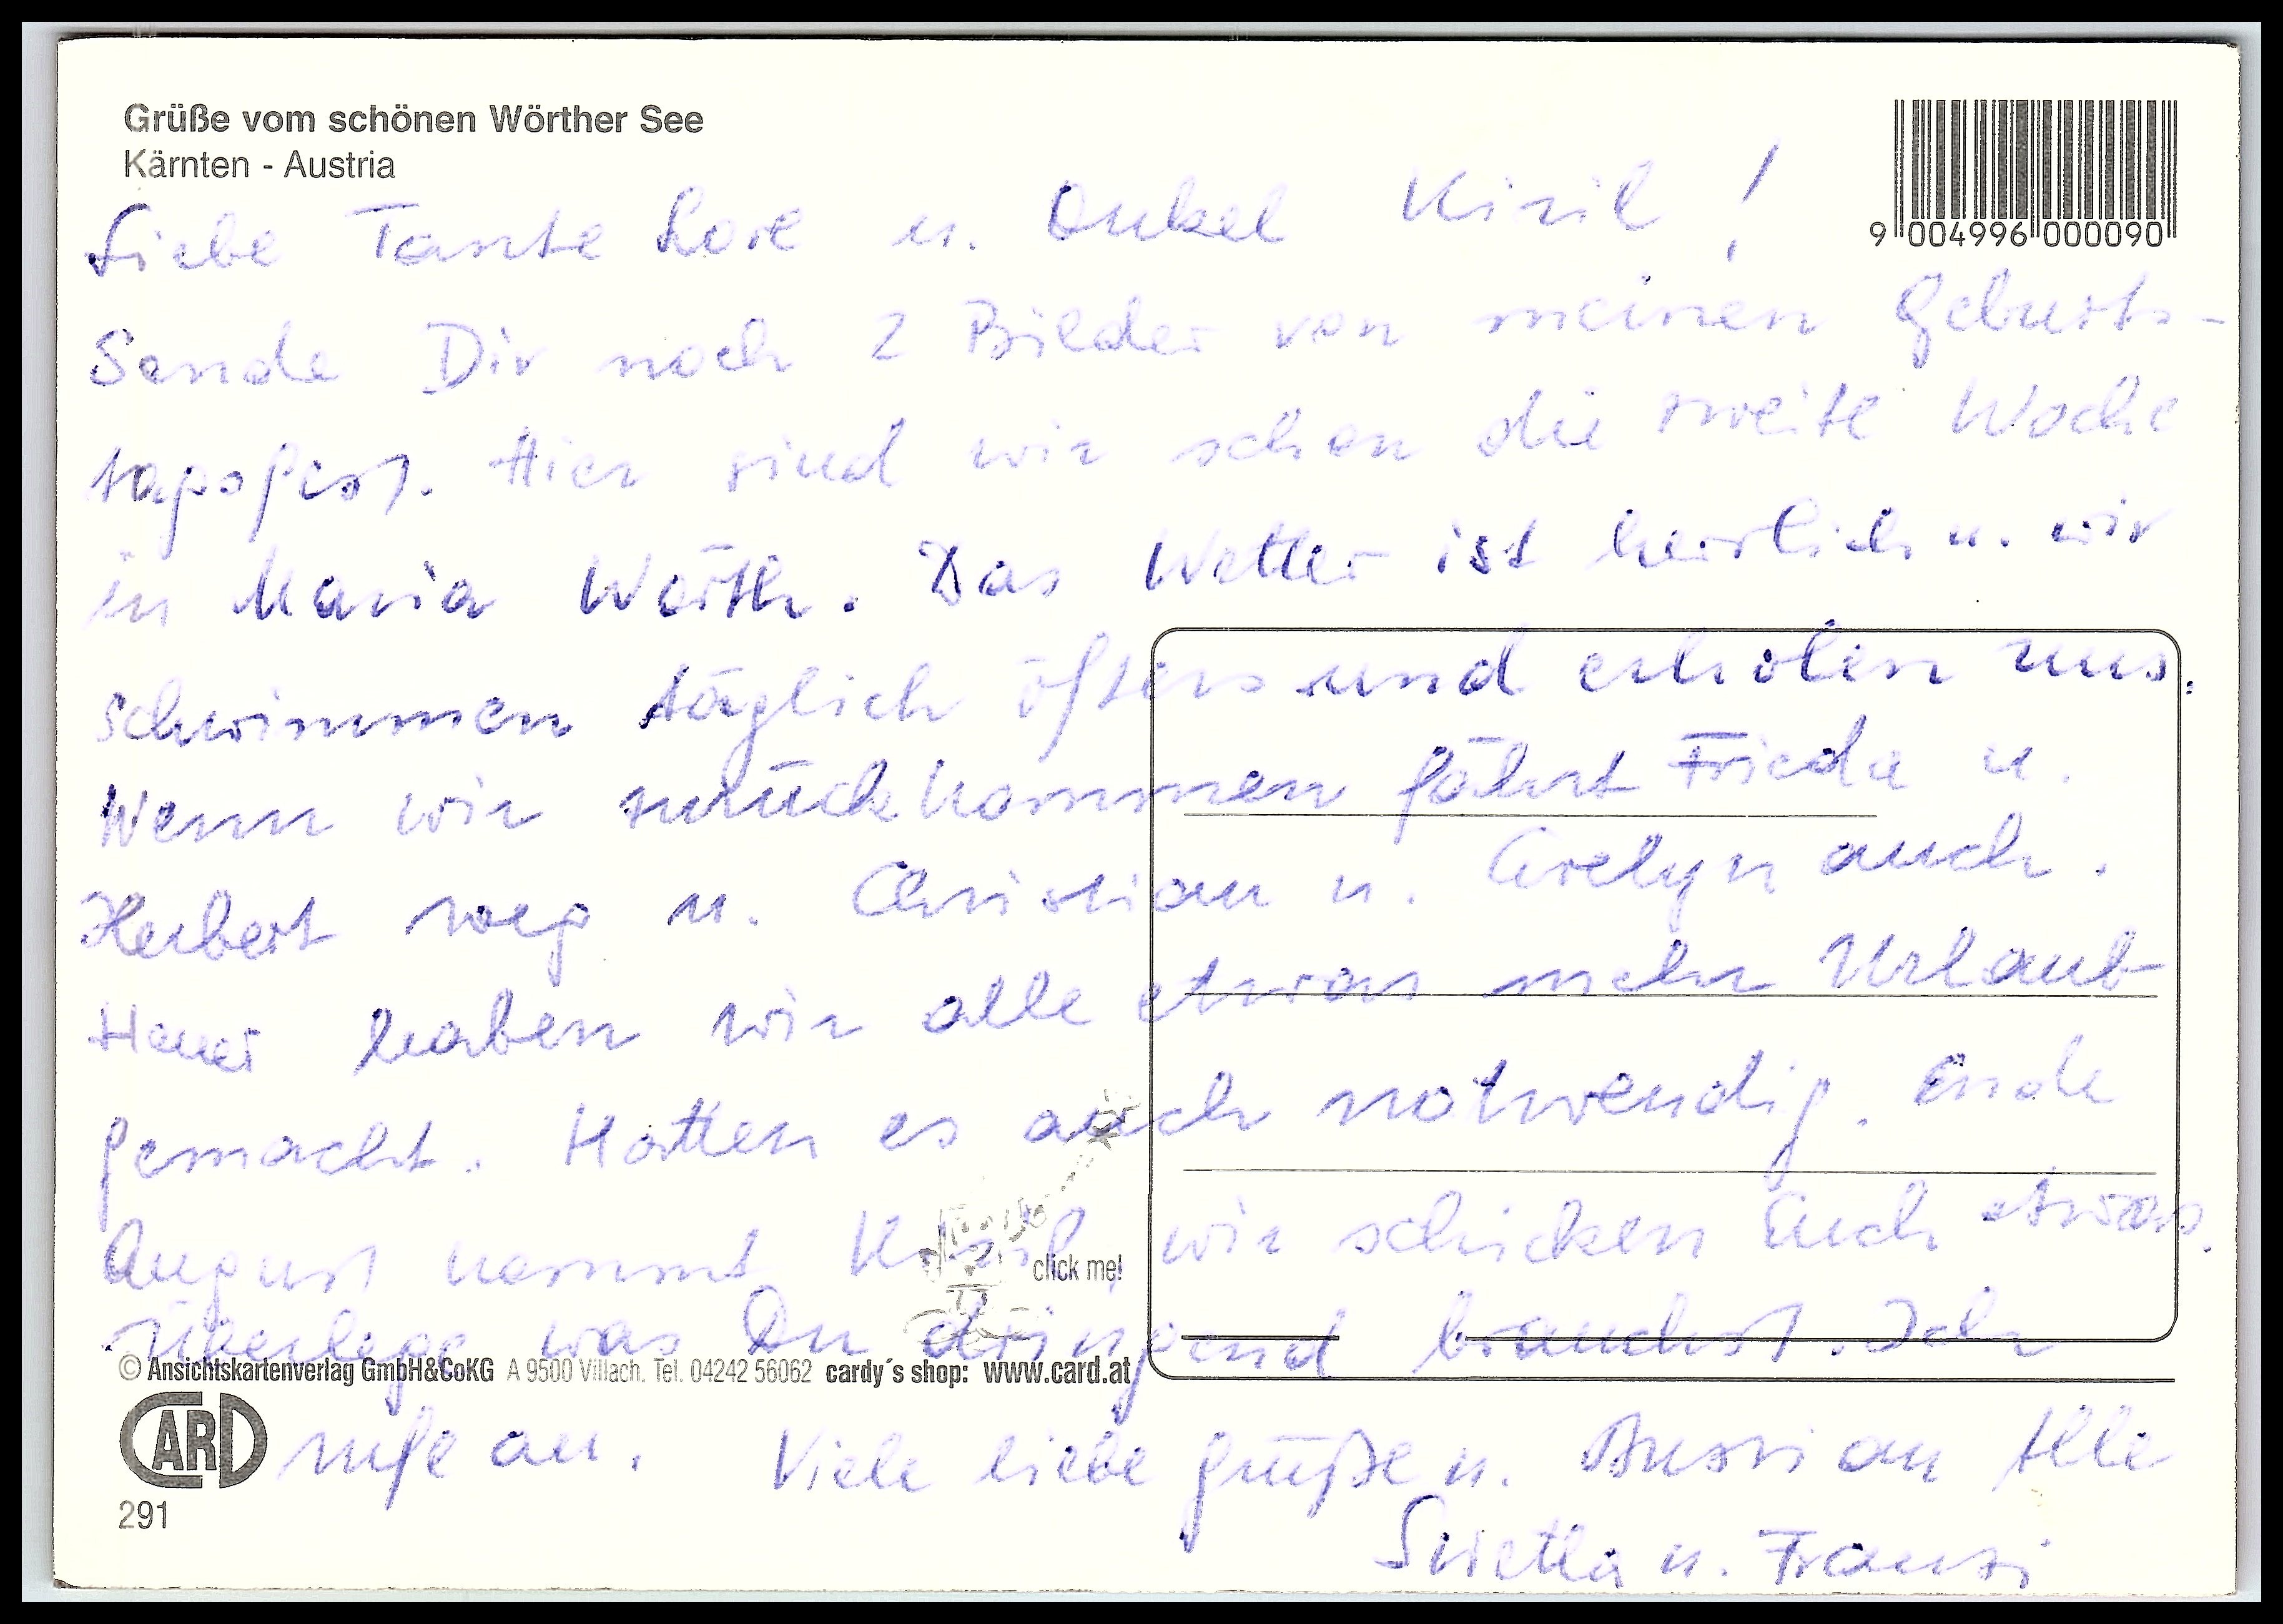 Grüße vom schönen Wörther See
Kärnten - Austria
9 004996 000090
Liebe Tante Lore u. Onkel Kiril!
Sende Dir noch 2 Bilder von meinen Geburts-
tagsfest. Hier sind wir schon die zweite Woche
in Maria Wörth. Das Wetter ist herrlich u. wir
schwimmen täglich öfters und erholen uns.
Wenn wir zurückkommen fährt Frieda u.
Herbert weg u. Christian u. Evelyn auch.
Heuer haben wir alle etwas mehr Urlaub
gemacht. Hatten es auch notwendig. Ende
August kommt Kiril, wir schicken Euch etwas.
Überlege was Du dringend brauchst. Ich
click me!
© Ansichtskartenverlag GmbH&CoKG A 9500 Villach. Tel. 04242 56062 cardy´s shop: www.card.at
CARD
rufe an. Viele liebe Grüße u. Bussi an Alle
291
Swetla u. Franzi